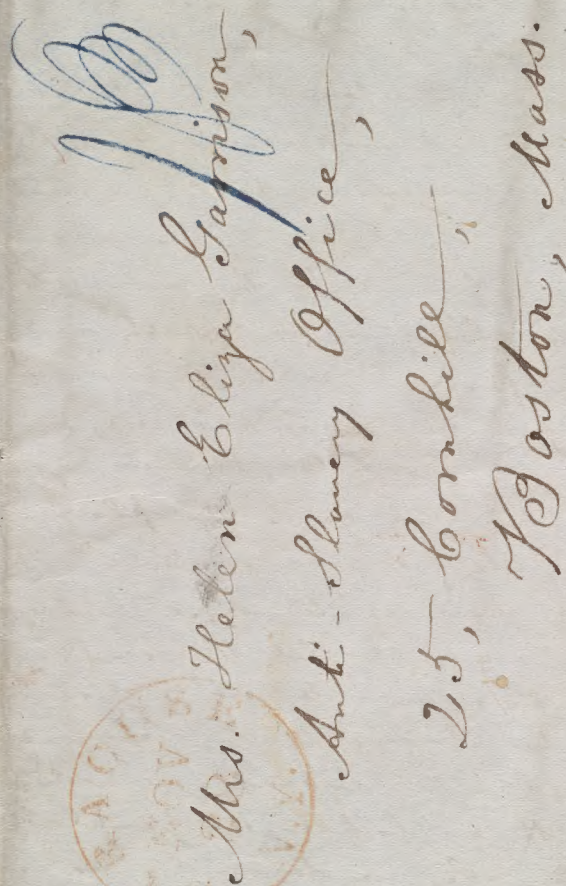 Mrs. Helen Eliza Garrison,
Anti-Slavery Office,
25, Cornhill,
Boston, Mass.
NOV